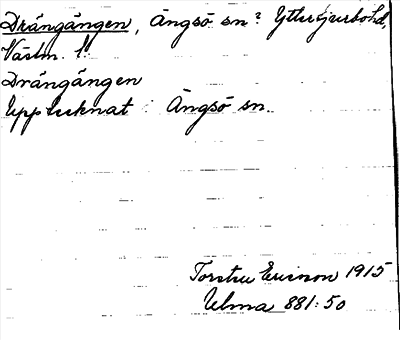 Drängängen, Ängsö sn? Yttertjurbo hd,
Västm. l.
Drängängen
Upptecknat i Ängsö sn.
Torsten Ericson 1915
Ulma 881:50